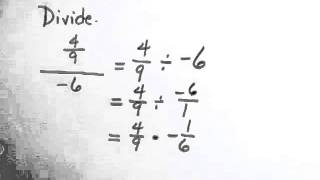 Divide.
4/9 / -6 = 4/9 ÷ -6
= 4/9 ÷ -6/1
= 4/9 · -1/6